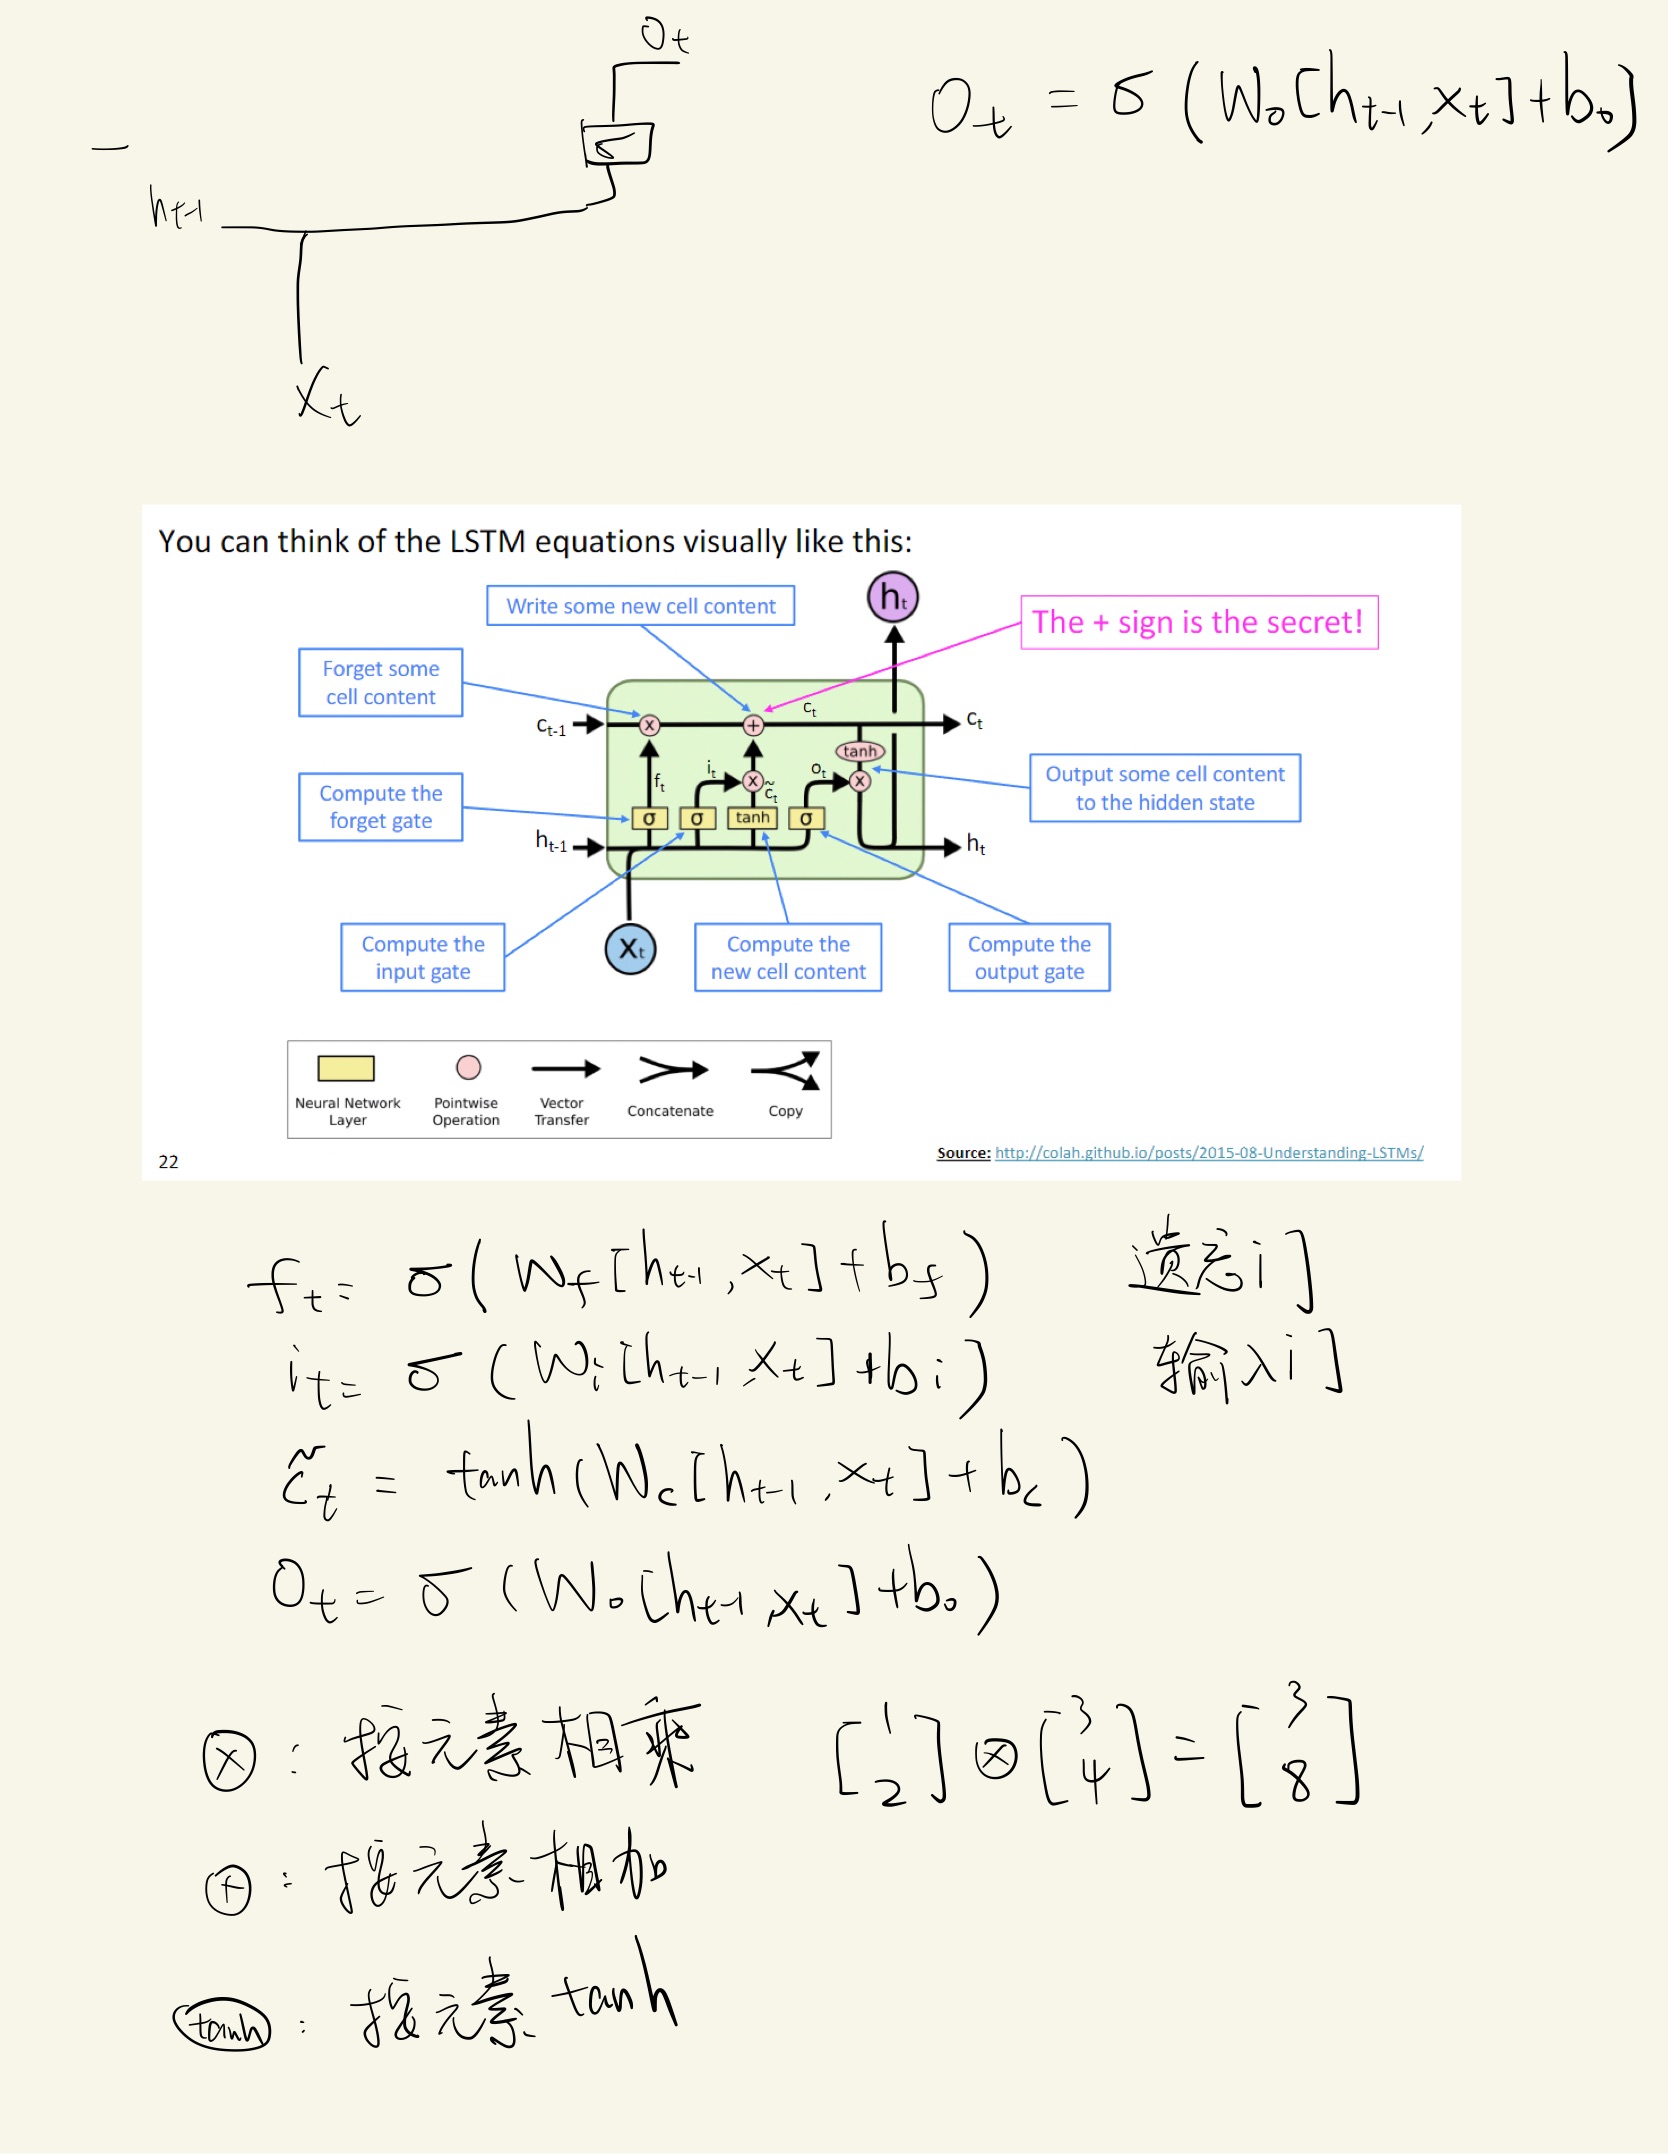 O_t
O_t = σ (W_o[h_{t-1}, x_t] + b_o)
σ
h_{t-1}
x_t
You can think of the LSTM equations visually like this:
h_t
Write some new cell content
The + sign is the secret!
Forget some
cell content
c_t
c_{t-1}
x
+
c_t
tanh
i_t
o_t
f_t
x
c̃_t
x
Output some cell content
to the hidden state
Compute the
forget gate
σ
σ
tanh
σ
h_{t-1}
h_t
Compute the
input gate
x_t
Compute the
new cell content
Compute the
output gate
Neural Network
Layer
Pointwise
Operation
Vector
Transfer
Concatenate
Copy
22
Source: http://colah.github.io/posts/2015-08-Understanding-LSTMs/
f_t = σ( W_f [h_{t-1}, x_t] + b_f ) 遗忘门
i_t = σ ( W_i [h_{t-1}, x_t] + b_i ) 输入门
c̃_t = tanh( W_c [h_{t-1}, x_t] + b_c )
O_t = σ ( W_o [h_{t-1}, x_t] + b_o )
⊗ : 按元素相乘 [1 2] ⊗ [3 4] = [3 8]
⊕ : 按元素相加
tanh : 按元素 tanh